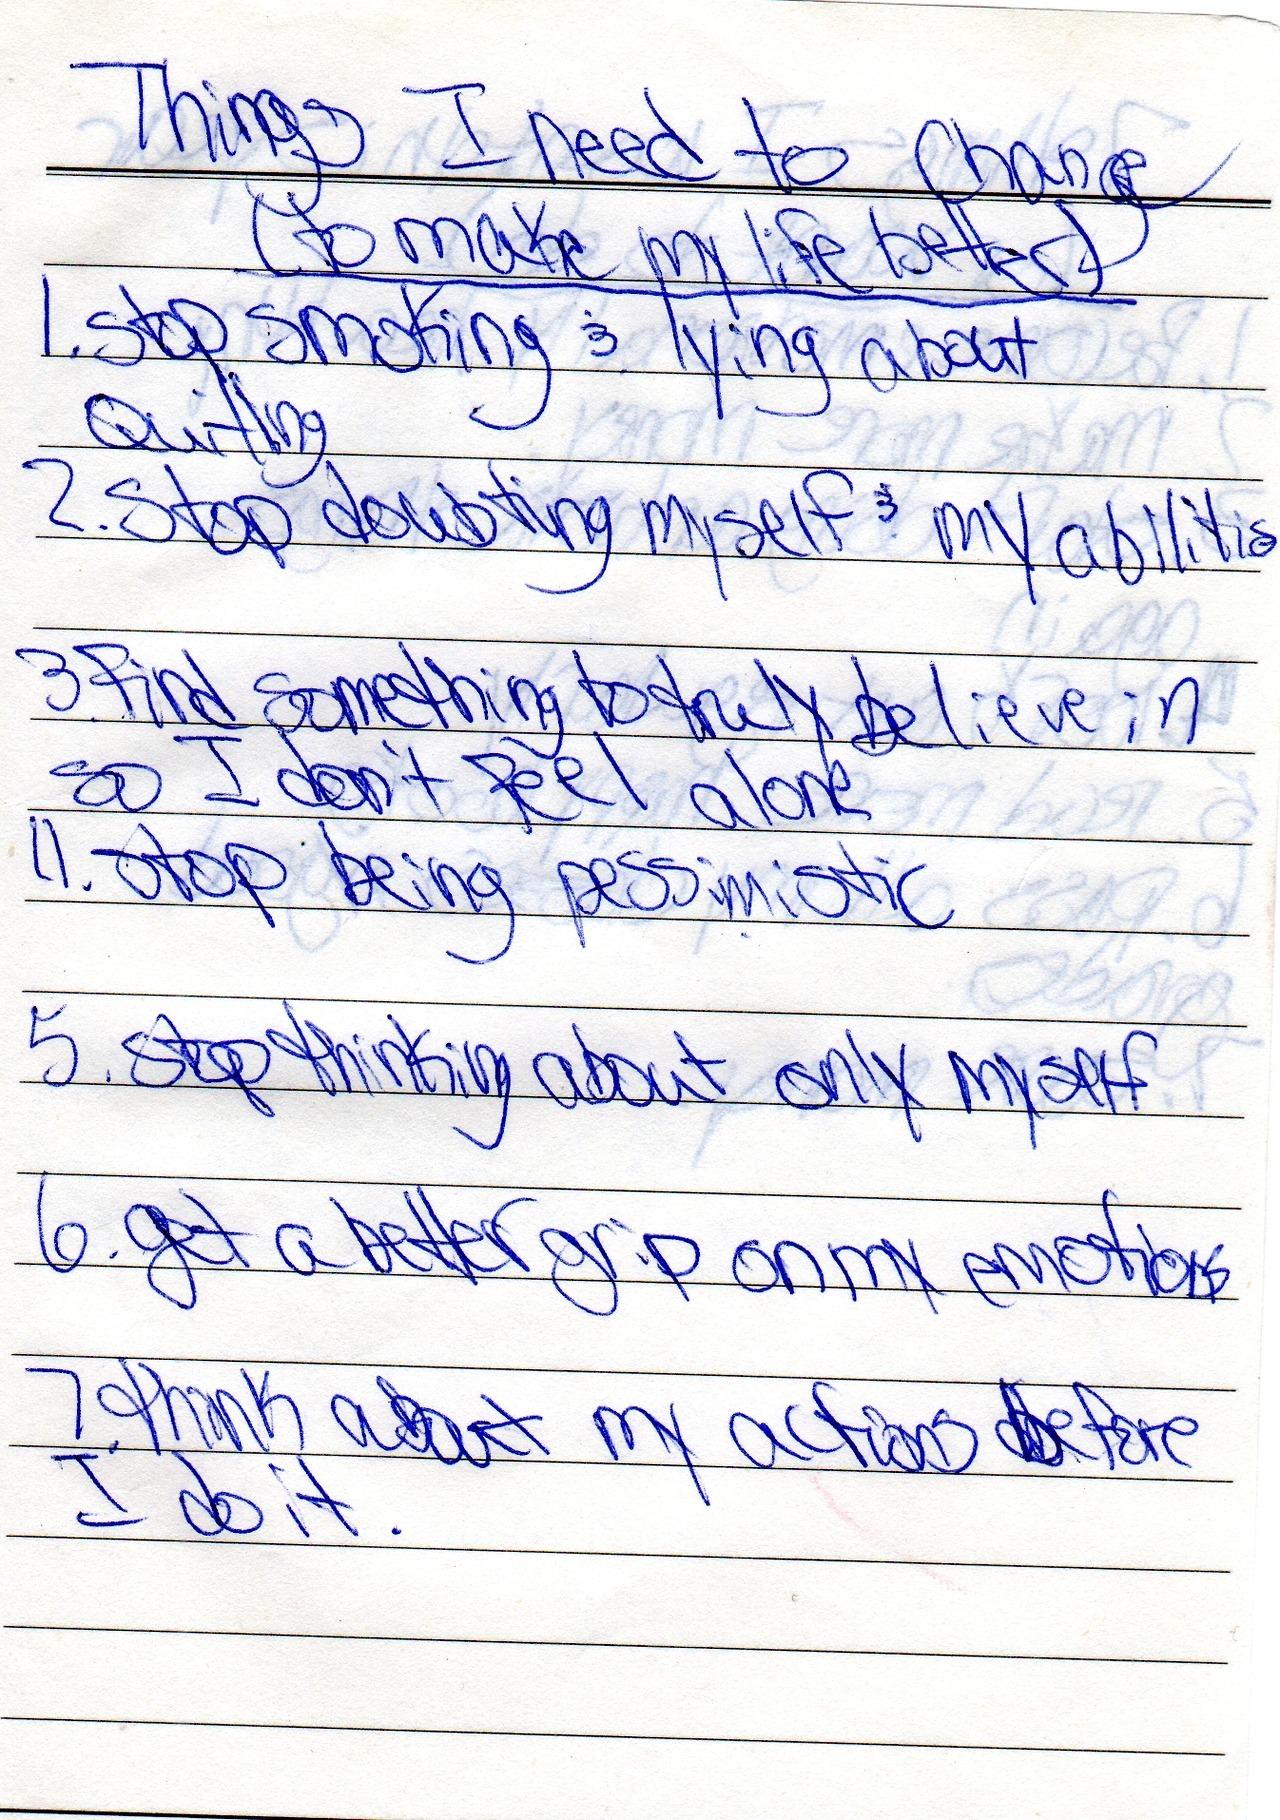 Things I need to change
(to make my life better)
1. stop smoking & lying about
quitting
2. stop doubting myself & my abilitis
3. Find something to truly believe in
so I don't feel alone
4. stop being pessimistic
5. stop thinking about only myself
6. get a better grip on my emotions
7. think about my actions before
I do it.